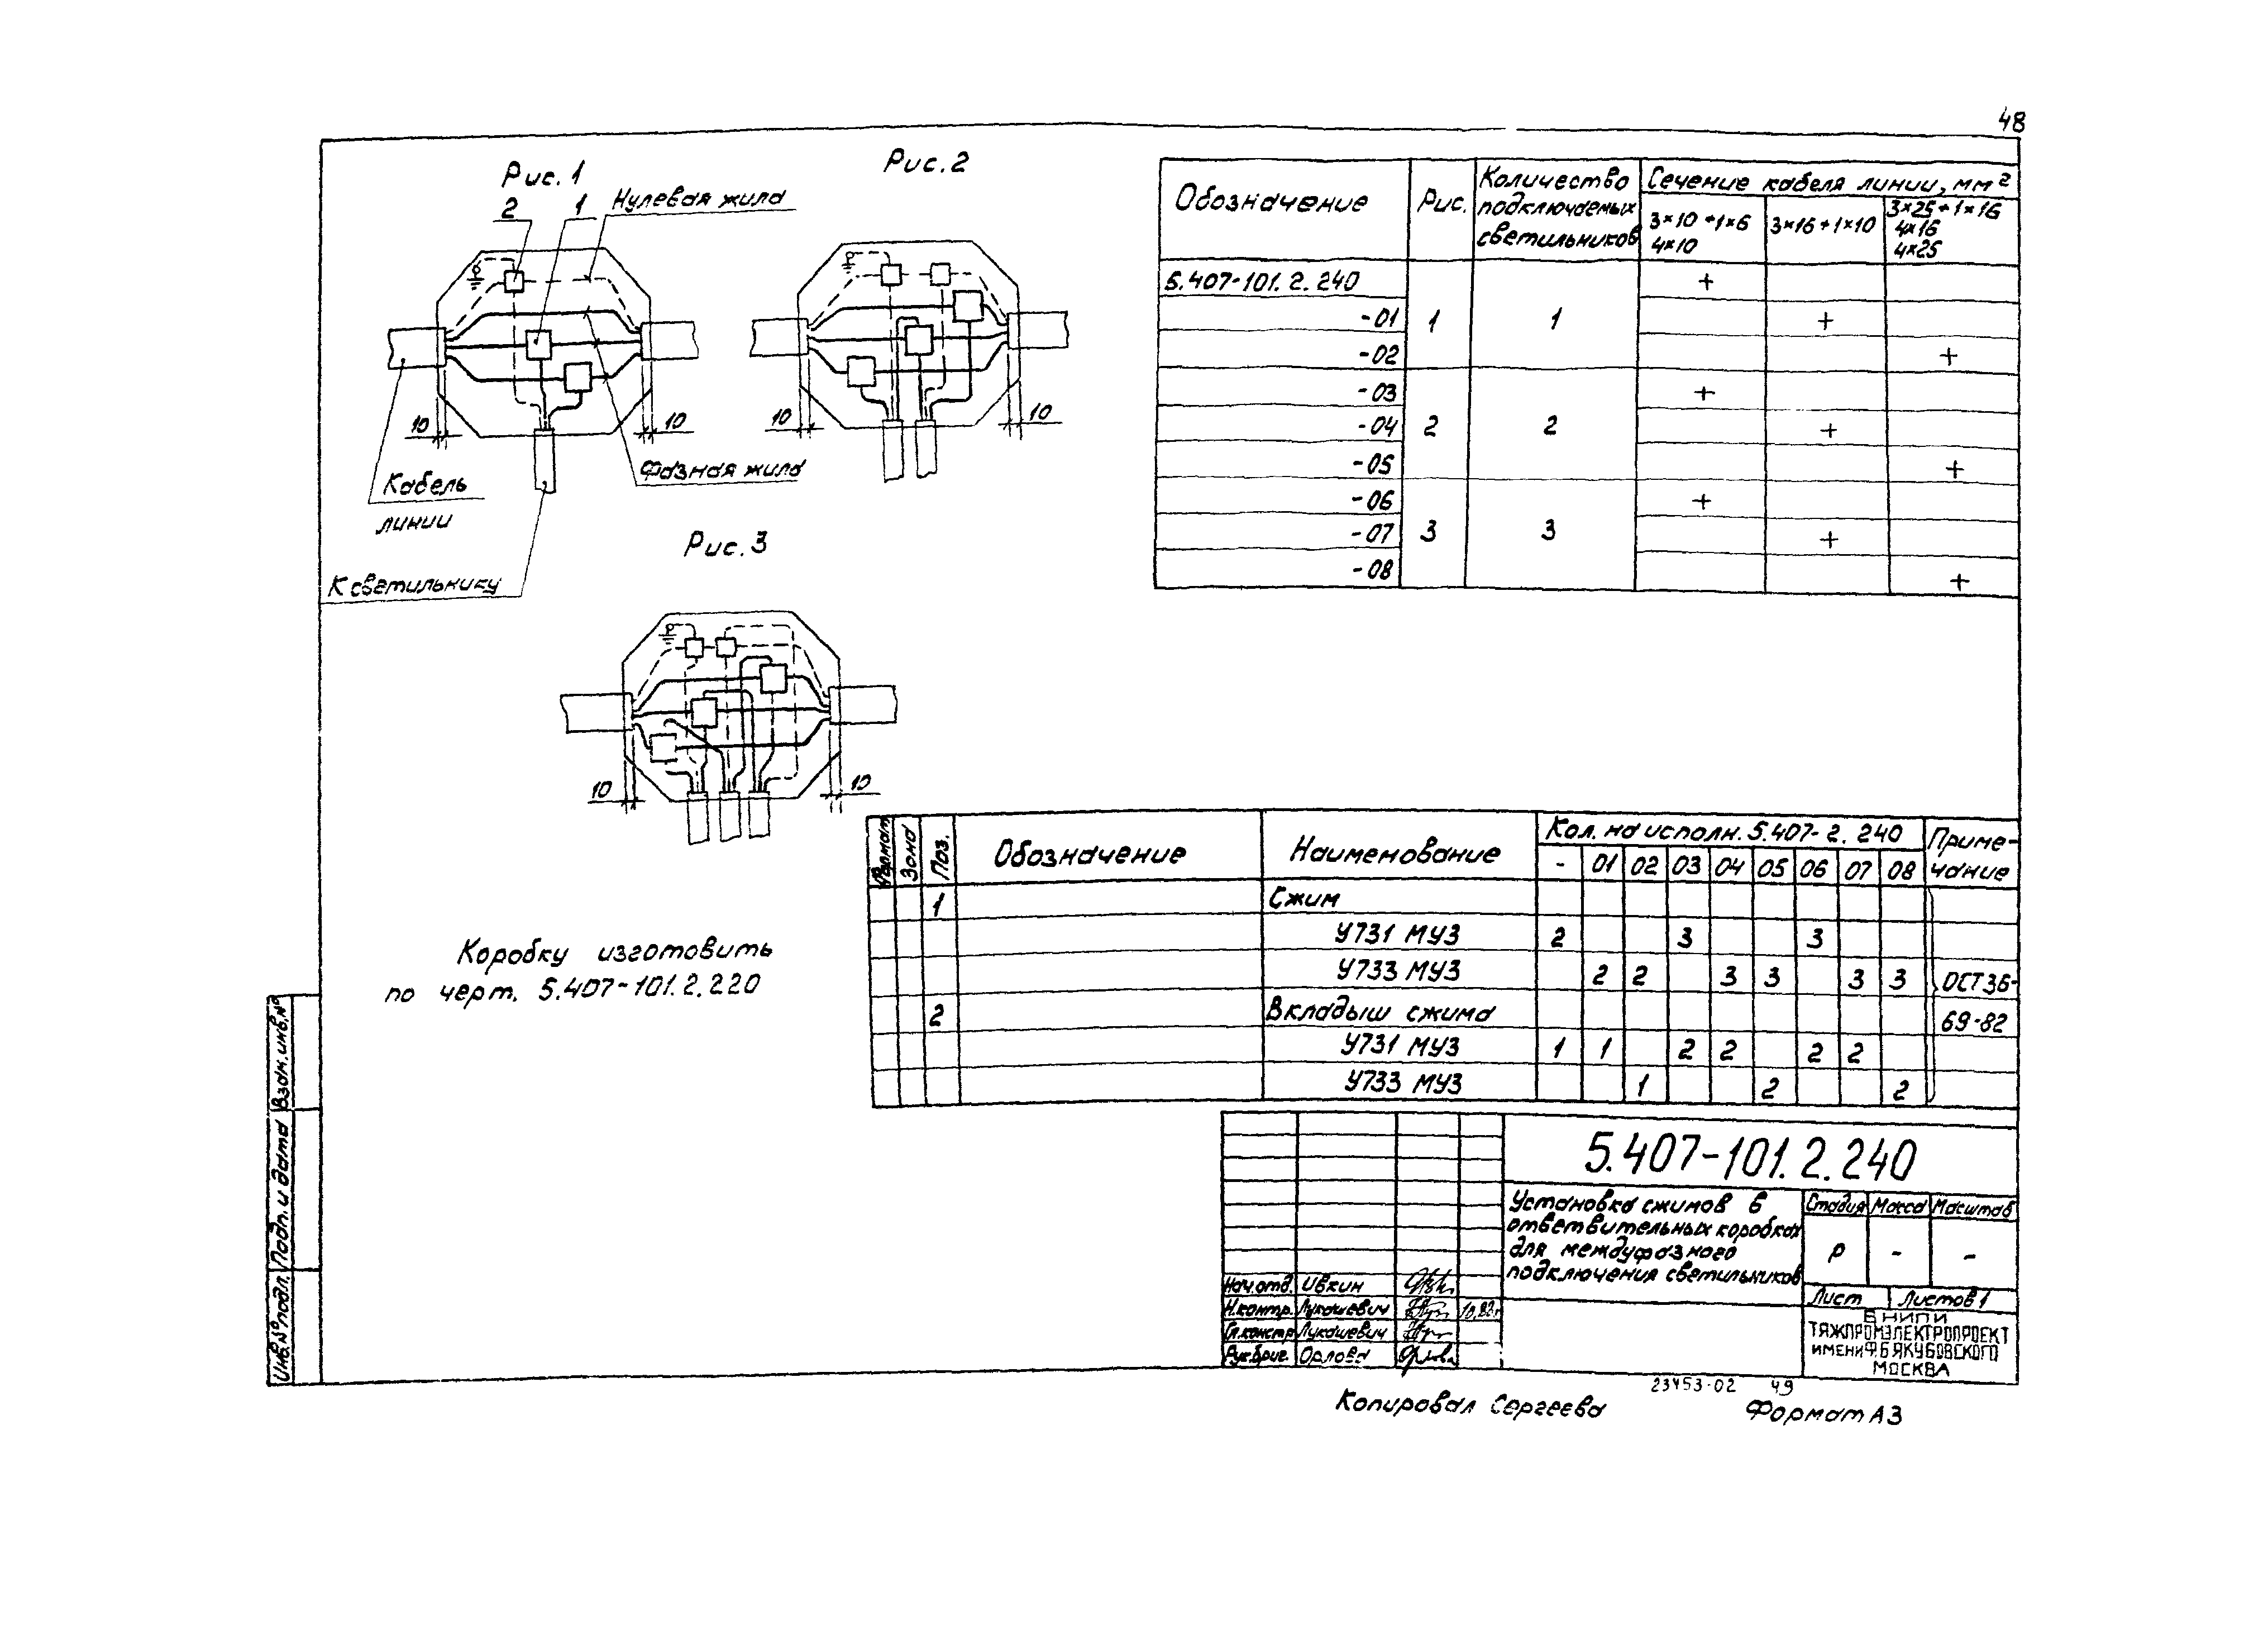 48
Рис. 1
2
1
Нулевая жила
10
10
Кабель
линии
Фазная жила
К светильнику
Рис. 2
10
10
Рис. 3
10
10
Коробку изготовить
по черт. 5.407-101.2.220
Обозначение
Рис.
Количество
подключаемых
светильников
Сечение кабеля линии, мм²
3×10+1×6
4×10
3×16+1×10
3×25+1×16
4×16
4×25
5.407-101.2.240 +
-01 1 1 +
-02 +
-03 +
-04 2 2 +
-05 +
-06 +
-07 3 3 +
-08 +
Формат
Зона
Поз.
Обозначение
Наименование
Кол. на исполн. 5.407-2.240
- 01 02 03 04 05 06 07 08
Приме-
чание
1 Сжим
У731 МУ3 2 3 3
У733 МУ3 2 2 3 3 3 3 ОСТ 36-
2 Вкладыш сжима 69-82
У731 МУ3 1 1 2 2 2 2
У733 МУ3 1 2 2
5.407-101.2.240
Установка сжимов в
ответвительных коробках
для междуфазного
подключения светильников
Стадия Масса Масштаб
Р - -
Лист Листов 1
ВНИПИ
ТЯЖПРОМЭЛЕКТРОПРОЕКТ
ИМЕНИ Ф.Б.ЯКУБОВСКОГО
МОСКВА
Нач.отд. Ивкин
Н.контр. Лукашевич
Гл.констр. Лукашевич
Рук.бриг. Орлова
Взам.инв.№
Подп. и дата
Инв.№подл.
23453-02 49
Копировал Сергеева
Формат А3